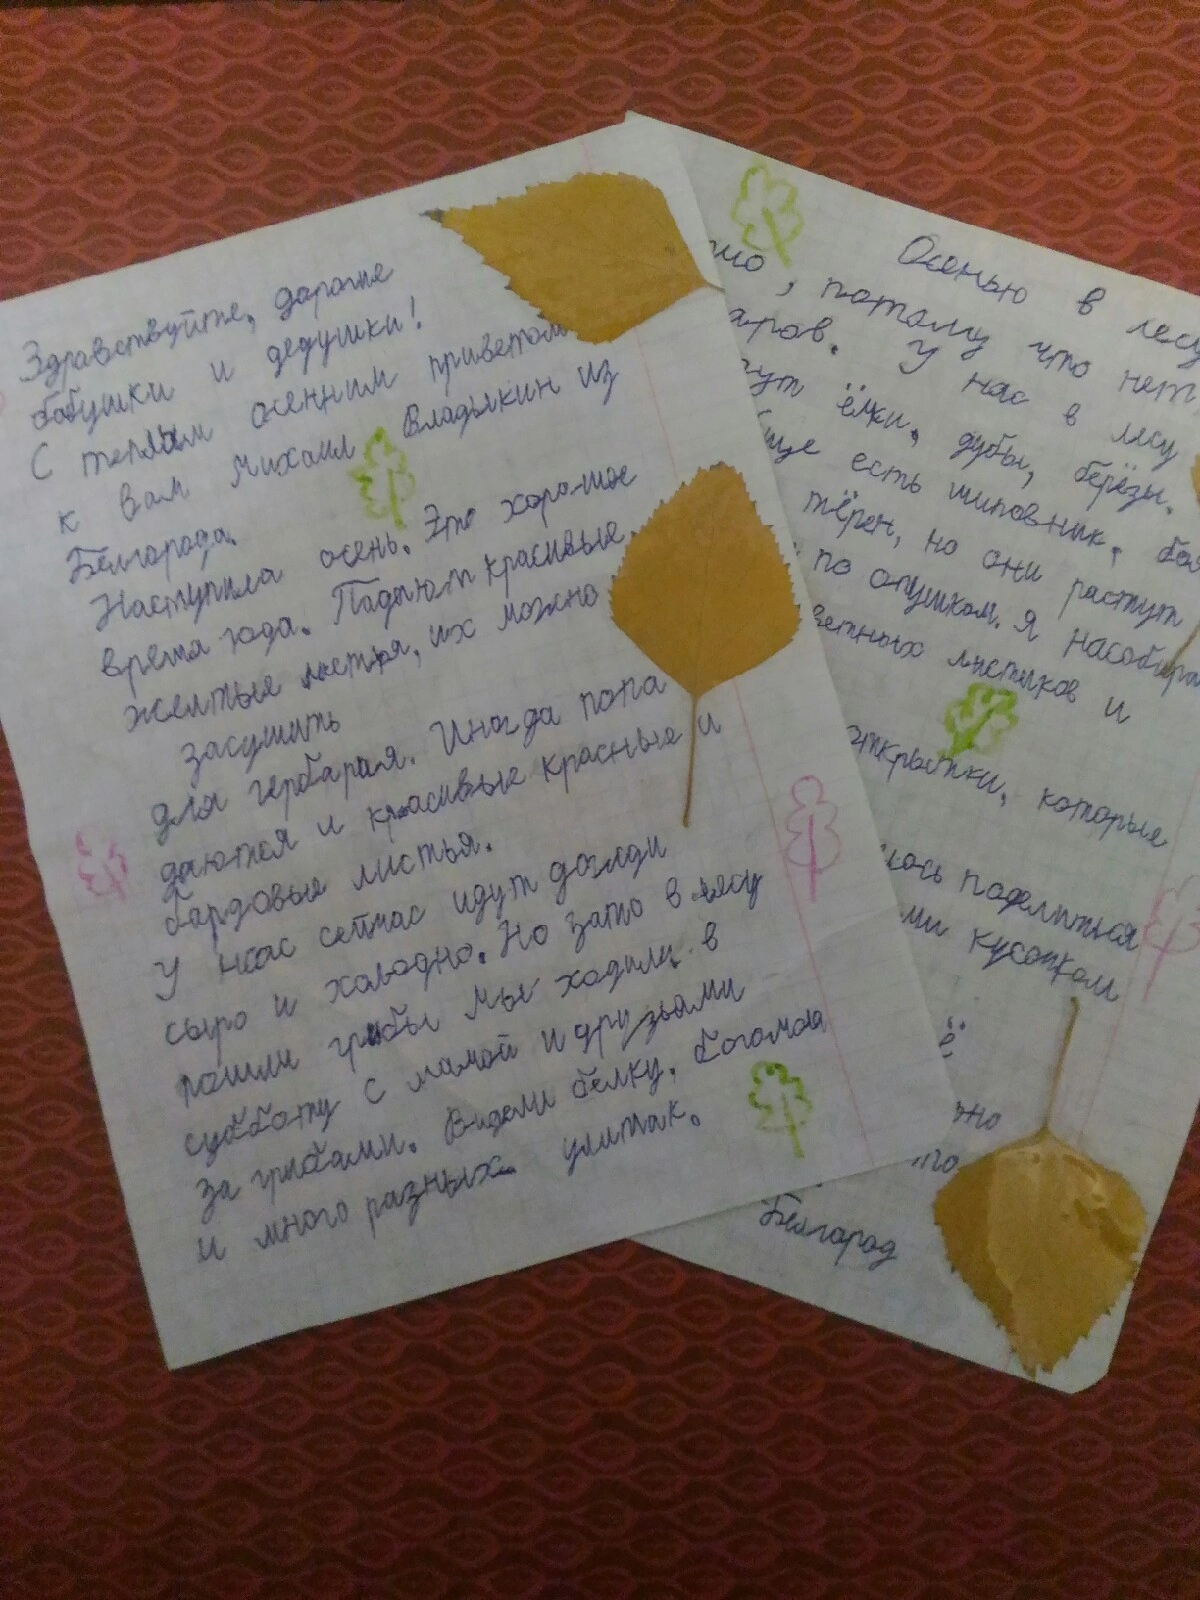 Здравствуйте, дорогие
бабушки и дедушки!
С теплым осенним приветом
к вам Михаил Владыкин из
Белгорода.
Наступила осень. Это хорошее
время года. Падают красивые,
желтые листья, их можно
засушить
для гербария. Иногда попа
даются и красивые красные и
бардовые листья.
У нас сейчас идут дожди
сыро и холодно. Но зато в лесу
пошли грибы мы ходили в
субботу с мамой и друзьями
за грибами. Видели белку, богомола
и много разных улиток.
Осенью в лесу
, потому что нет
аров. У нас в лесу
тут ёлки, дубы, берёзы.
Еще есть шиповник, боя
тёрен, но они растут
по опушкам. Я насобирал
ветных листиков и
открытки, которые
лось поделиться
ми кусочком
ё
жно
Белгород